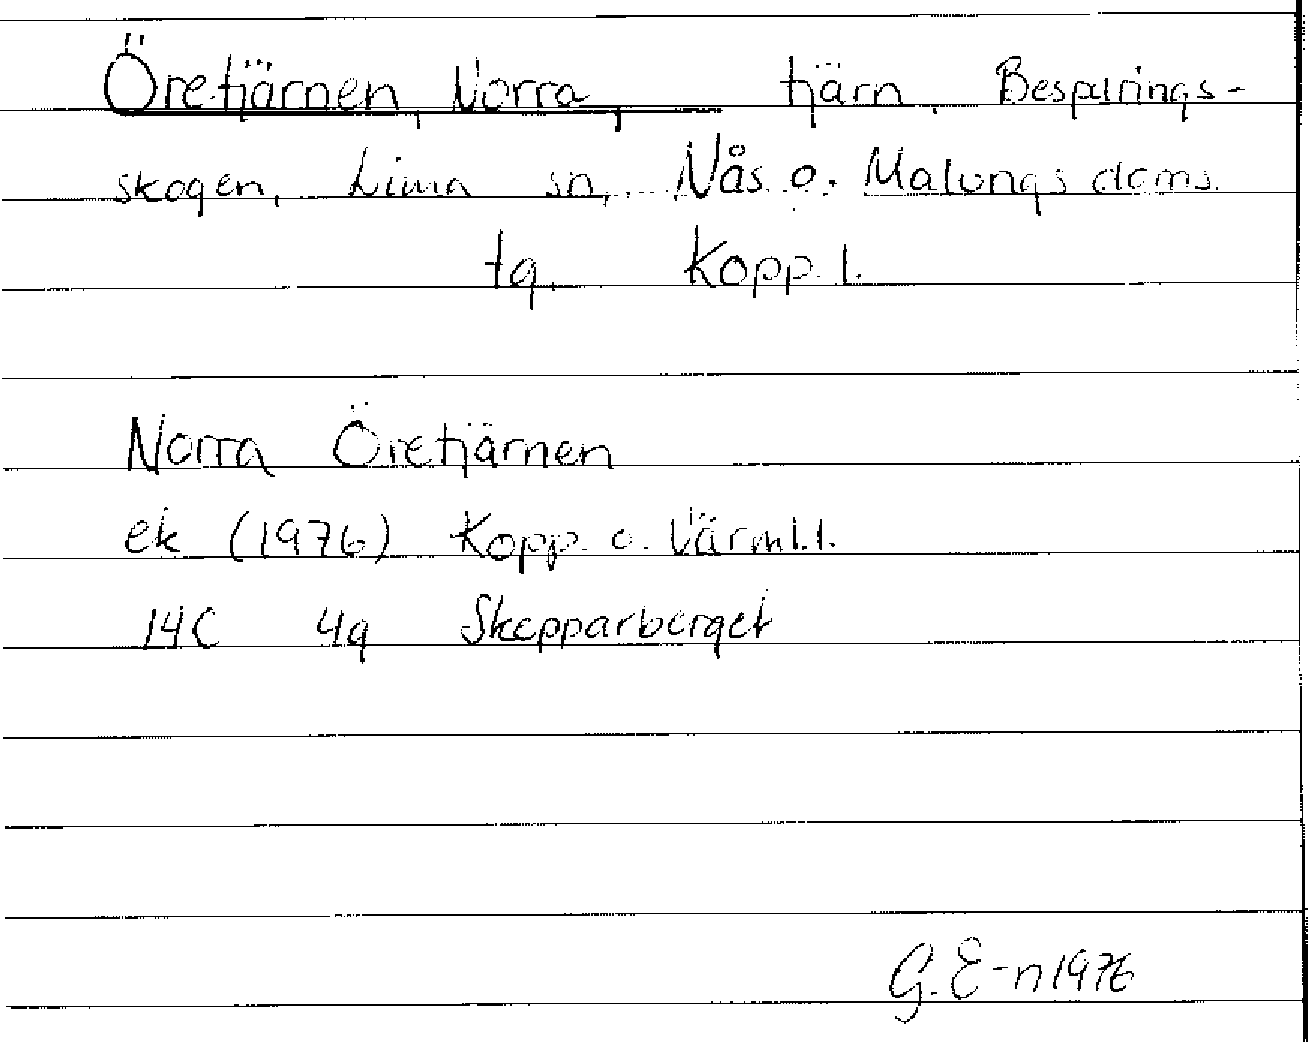 Öretjärnen, Norra, tjärn, Besparings-
skogen, Lima sn, Nås o. Malungs doms.
tg, Kopp. l.
Norra Öretjärnen
ek (1976) Kopp. o. Värml.l.
14C 4g Skepparberget
G. E-n 1976